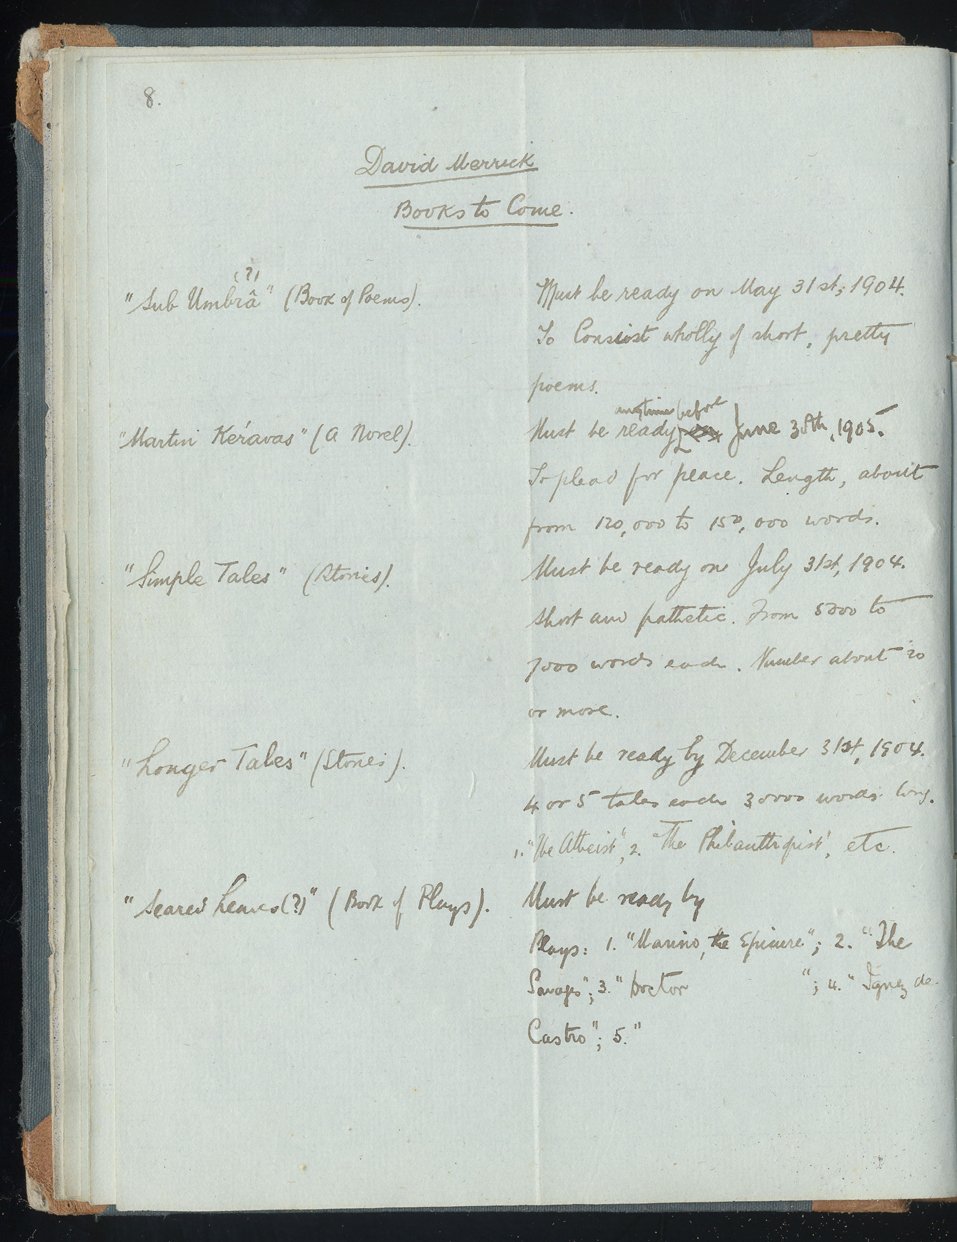 8.
David Merrick
Books to Come.
(?)
"Sub Umbrâ" (Book of Poems).
Must be ready on May 31st, 1904.
To Consist wholly of short, pretty
poems.
anytime before
"Martin Kéravas" (A Novel).
Must be ready on June 30th, 1905.
To plead for peace. Length, about
from 120,000 to 150,000 words.
"Simple Tales" (Stories).
Must be ready on July 31st, 1904.
Short and pathetic. From 5000 to
7000 words each. Number about 20
or more.
"Longer Tales" (Stories).
Must be ready by December 31st, 1904.
4 or 5 tales each 30000 words long.
1. "The Atheist", 2. "The Philanthropist", etc.
"Seared Leaves(?)" (Book of Plays).
Must be ready by
Plays: 1. "Marino, the Epicure"; 2. "The
Savage"; 3. "Doctor "; 4. "Ignez de
Castro"; 5. "